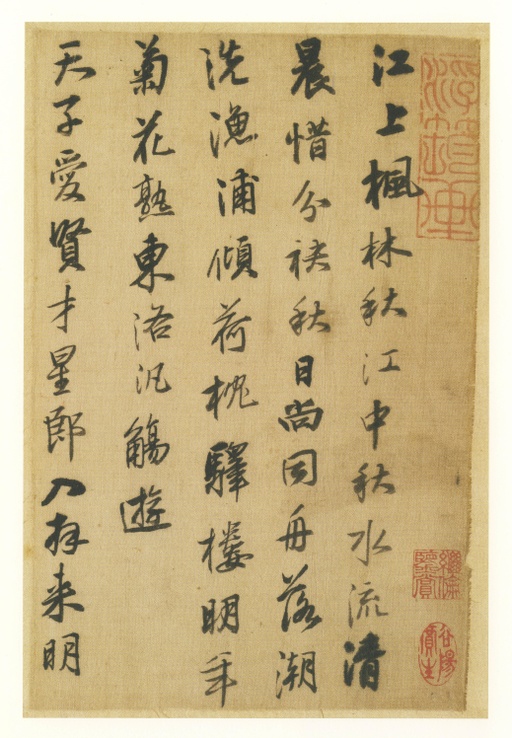 江上楓林秋江中秋水流清
晨惜分袂秋日尚同舟落潮
洗漁浦傾荷枕驛樓明年
菊花熟東洛汎觴遊
天子愛賢才星郎入拜来明